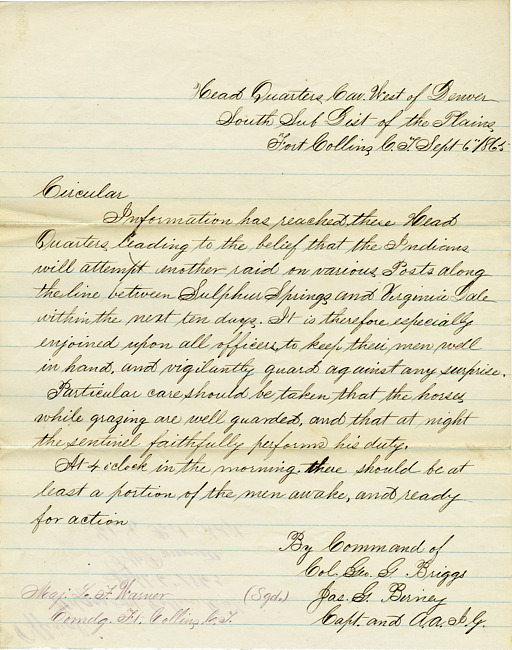 Head Quarters Cav. West of Denver
South Sub Dist of the Plains,
Fort Collins C.T. Sept 6th 1865
Circular
Information has reached these Head
Quarters, leading to the belief that the Indians
will attempt another raid on various Posts along
the line between Sulphur Springs and Virginia Dale
within the next ten days. It is therefore especially
enjoined upon all officers, to keep their men well
in hand, and vigilantly guard against any surprise.
Particular care should be taken that the horses
while grazing are well guarded, and that at night
the sentinel faithfully perform his duty.
At 4 o'clock in the morning there should be at
least a portion of the men awake, and ready
for action
By Command of
Col. Geo. G. Briggs
Maj. L. F. Warner (Sgd.) Jas. G. Birney
Comdg. Ft. Collins, C.T. Capt. and A.A.I.G.